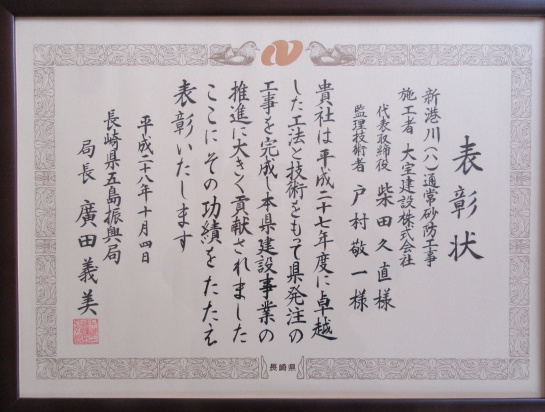 表彰状
新港川(八)通常砂防工事
施工者 大宝建設株式会社
代表取締役 柴田久直様
監理技術者 戸村敬一様
貴社は平成二十七年度に卓越
した工法と技術をもって県発注の
工事を完成し本県建設事業の
推進に大きく貢献されました
ここにその功績をたたえ
表彰いたします
平成二十八年十月四日
長崎県五島振興局
局長 廣田義美
長崎県